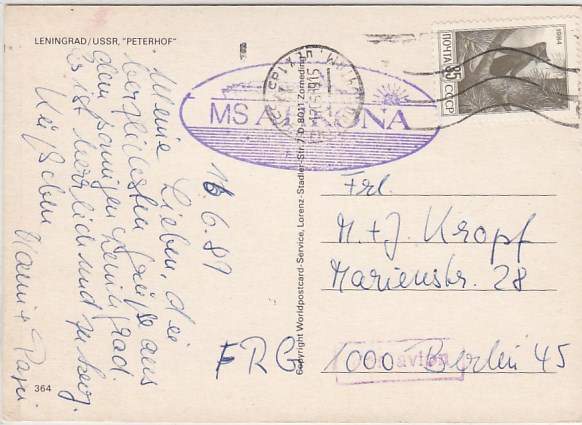 LENINGRAD/USSR, "PETERHOF"
Meine Lieben, die
herzlichsten Grüße aus
dem sonnigen Leningrad.
Es ist herrlich und
Küßchen Mami + Papi
16.6.89
364
Copyright Worldpostcard-Service, Lorenz-Stadler-Str. 7, D-8011 Zorneding
MS ARKONA
1984
ПОЧТА
35
СССР
Frl.
M. + J. Kropf
Marienstr. 28
FRG 1000 Berlin 45
Par avion